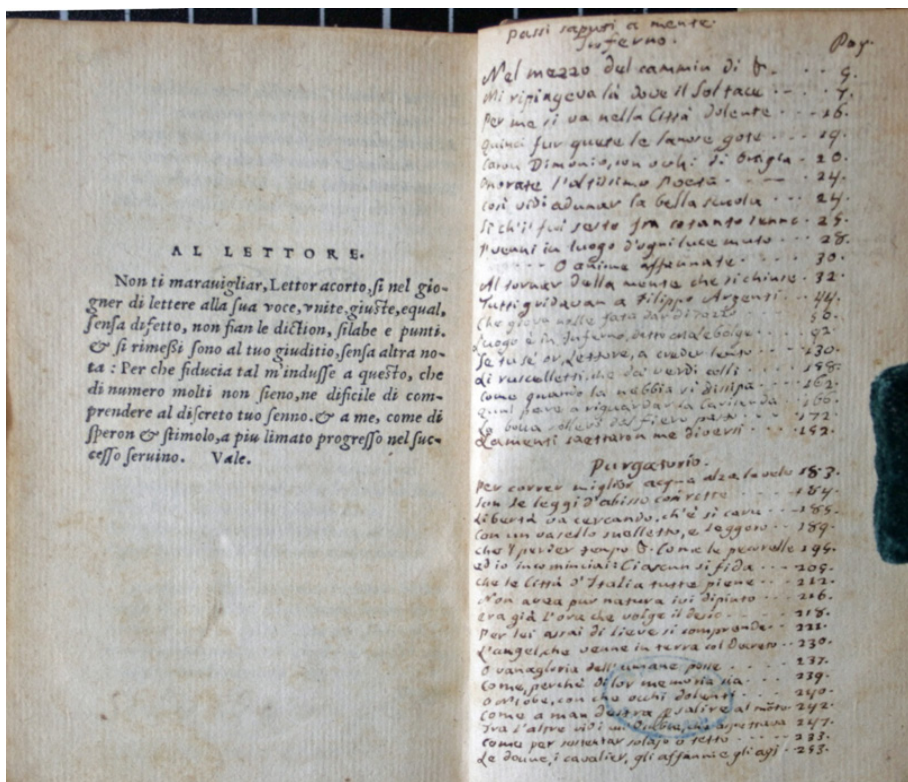 AL LETTORE.
Non ti marauigliar, Lettor acorto, si nel gio-
gner di lettere alla sua voce, vnite, giuste, equal,
sensa difetto, non fian le diction, silabe e punti.
& si rimessi sono al tuo giuditio, sensa altra no-
ta : Per che fiducia tal m'indusse a questo, che
di numero molti non sieno, ne dificile di com-
prendere al discreto tuo senno. & a me, come di
speron & stimolo, a piu limato progresso nel suc-
cesso seruino. Vale.
Passi saputi a mente.
Inferno. Pag.
Nel mezzo del cammin di &. - - - 5.
Mi ripingeva là dove il Sol tace - - - 7.
Per me si va nella Città dolente - - - 16.
Quinci fur quete le lanose gote - - - 19.
Caron Dimonio, con occhi di - 20.
Onorate l'altissimo Poeta - - - 24.
Così vidi adunar la bella scuola - - - 24.
Sì ch'il fui sesto fra cotanto senno - 25.
Venni in luogo d'ogni luce muto - - - 28.
- - - O anime affannate - - - 30.
Al tornar della mente che si chiuse - 32.
Tutti gridavan a Filippo Argenti - - 44.
Che giova nelle fata dar di cozzo - - 50.
Luogo è in Inferno, detto malebolge - 92.
Se tu se' or, Lettore, a creder lento - - 130.
Li ruscelletti, che da' verdi colli - - - 158.
Come quando la nebbia si dissipa - - 162.
Qual pare a riguardar la Carisenda - - 166.
La bocca sollevò dal fiero pasto - - 172.
Lamenti saettaron me diversi - - - 152.
Purgatorio.
Per correr miglior acqua alza le vele 183.
Son le leggi d'abisso così rotte - - - 184.
Libertà va cercando, ch'è sì cara - - - 185.
Con un vasello snelletto, e leggero - - 189.
Che & Come le pecorelle 195.
ed io incominciai: Ciascun si fida - - 205.
Che le Città d'Italia tutte piene - - - 212.
Non avea pur natura ivi dipinto - - 216.
Era già l'ora che volge il desio - - - 218.
Per lei assai di lieve si comprende - - 221.
L'angel, che venne in terra col Decreto - - 230.
O vanagloria dell'umane posse - - - 237.
Come, perchè di lor memoria sia - - - 239.
O Niobe, con che occhi dolenti - - - 240.
Come a man destra p salire al mōte - 242.
Tra l'altre vidi un' ombra, che aspettava 247.
Come per sostentar solajo o tetto - - - 233.
Le donne, i cavalier, gli affanni e gli agi - - 253.